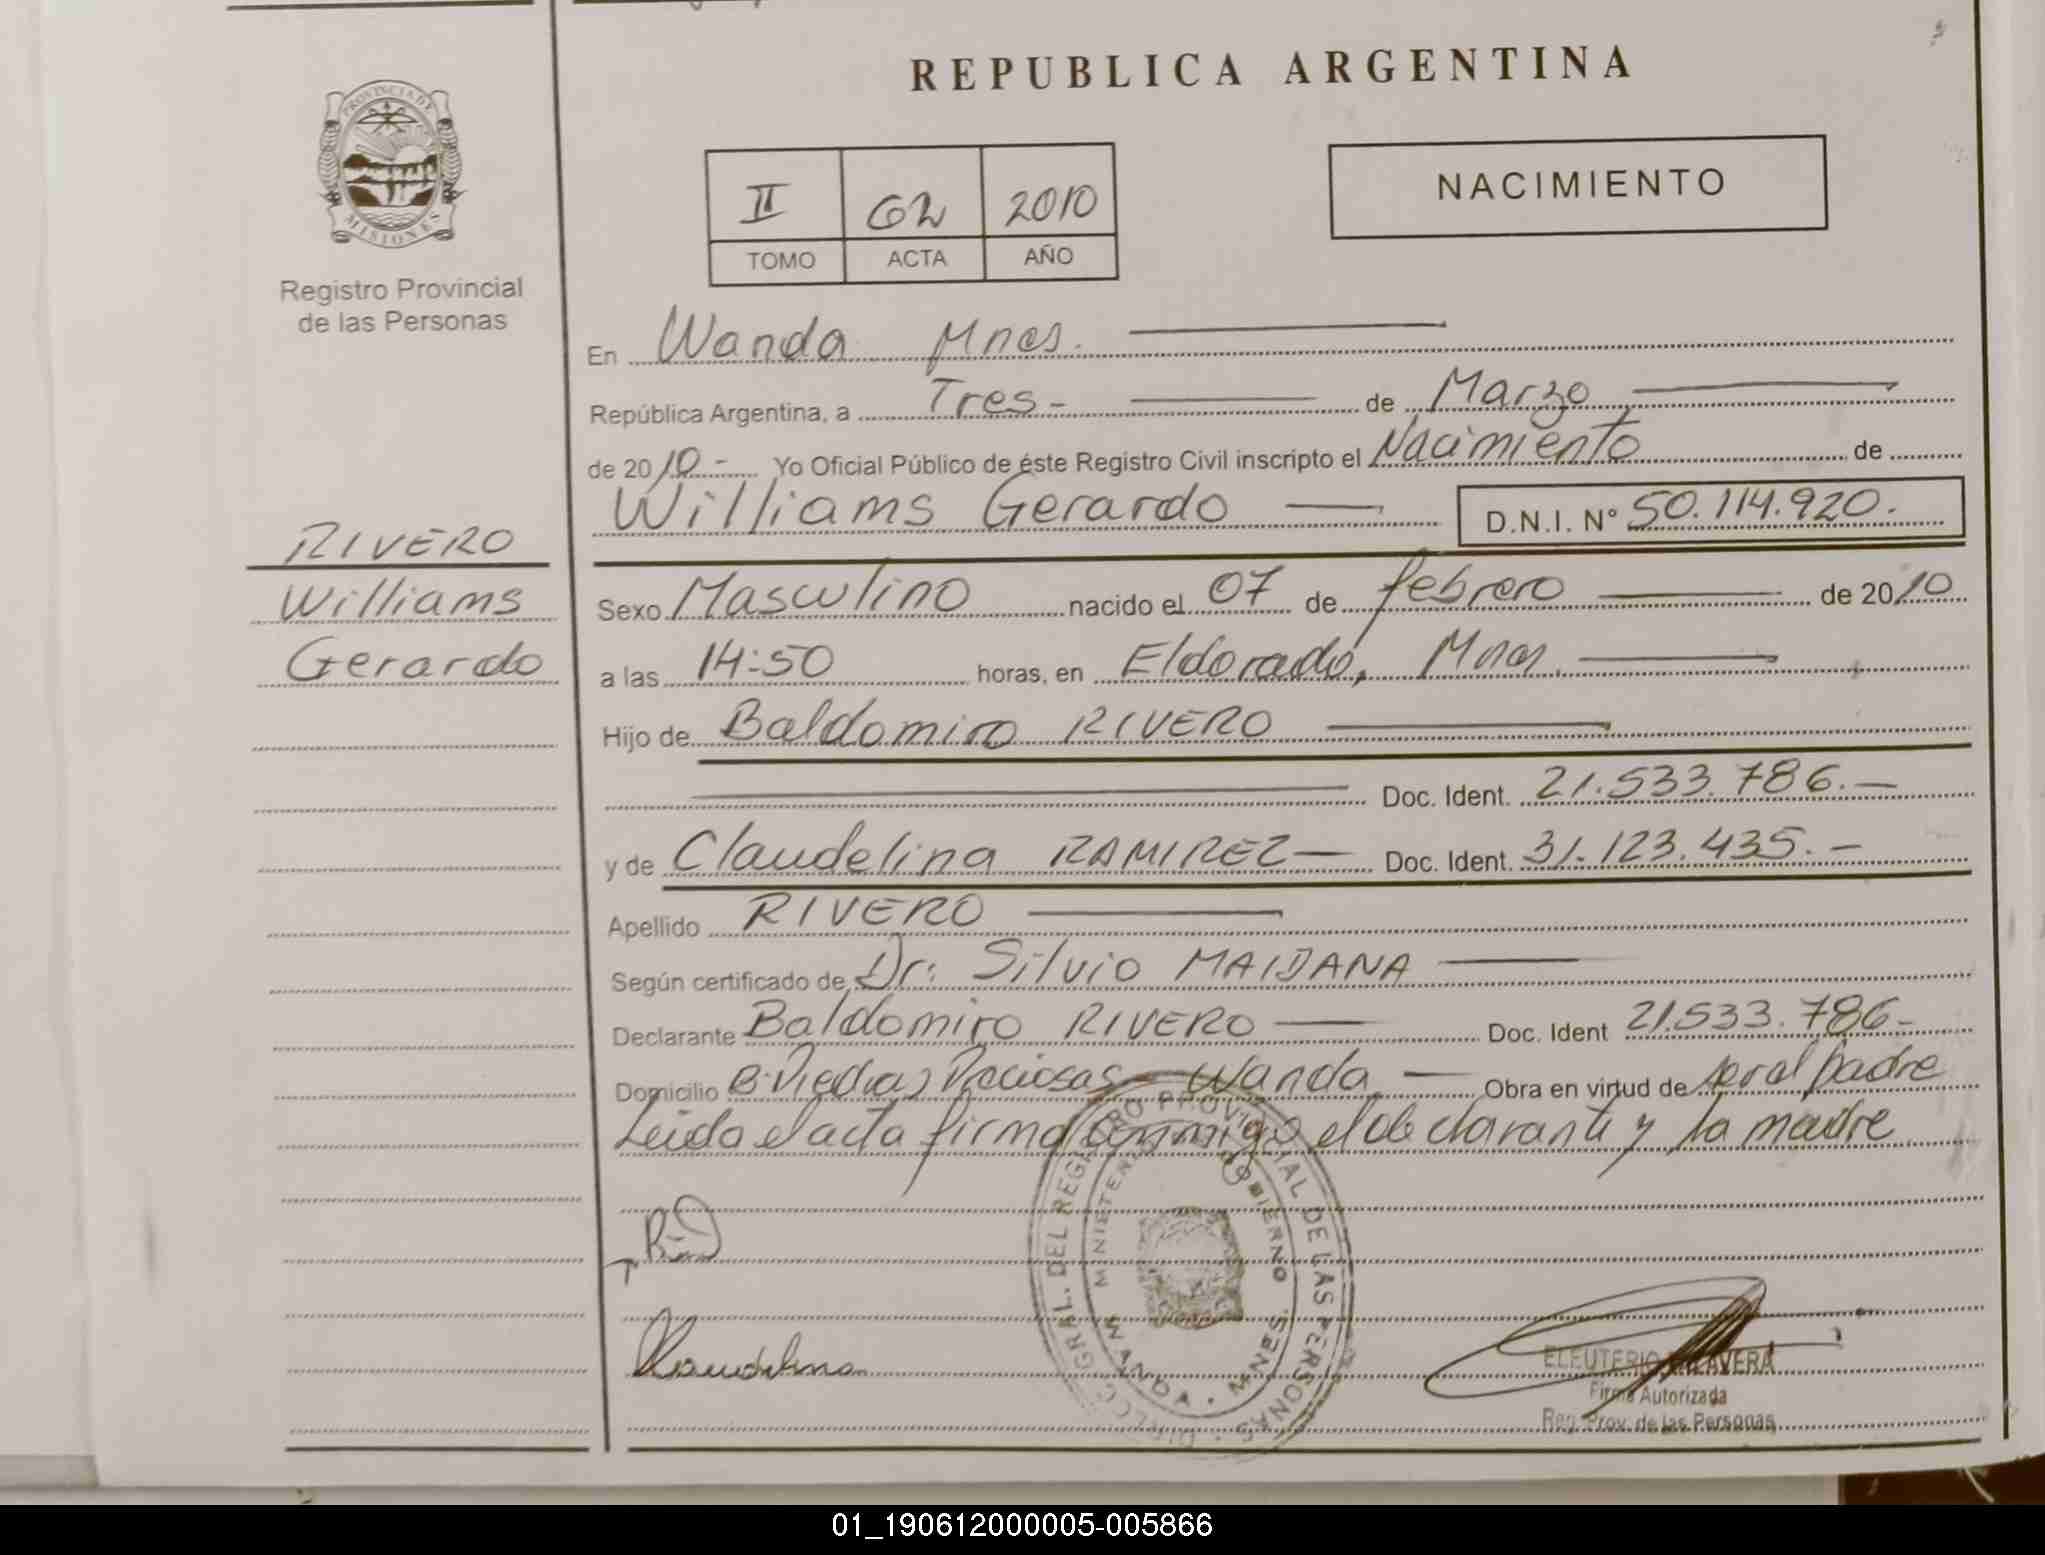 REPUBLICA ARGENTINA
PROVINCIA DE
MISIONES
Registro Provincial
de las Personas
II 62 2010
TOMO ACTA AÑO
NACIMIENTO
En Wanda Mnes.
República Argentina, a Tres- de Marzo
de 2010.- Yo Oficial Público de éste Registro Civil inscripto el Nacimiento de
Williams Gerardo D.N.I. Nº 50.114.920.
RIVERO
Williams
Gerardo
Sexo Masculino nacido el 07 de febrero de 2010
a las 14:50 horas, en Eldorado, Mnes.
Hijo de Baldomiro RIVERO
Doc. Ident. 21.533.786.-
y de Claudelina RAMIREZ- Doc. Ident. 31.123.435.-
Apellido RIVERO
Según certificado de Dr: Silvio MAIDANA
Declarante Baldomiro RIVERO Doc. Ident 21.533.786-
Domicilio B: Piedras Preciosas- Wanda Obra en virtud de ser el padre
Leida el acta firma conmigo el declarante y la madre
DIRECC. GRAL. DEL REGISTRO PROVINCIAL DE LAS PERSONAS
GOBIERNO
WANDA - MNES.
Claudelina
ELEUTERIO TALAVERA
Firma Autorizada
Reg. Prov. de las Personas
01_190612000005-005866